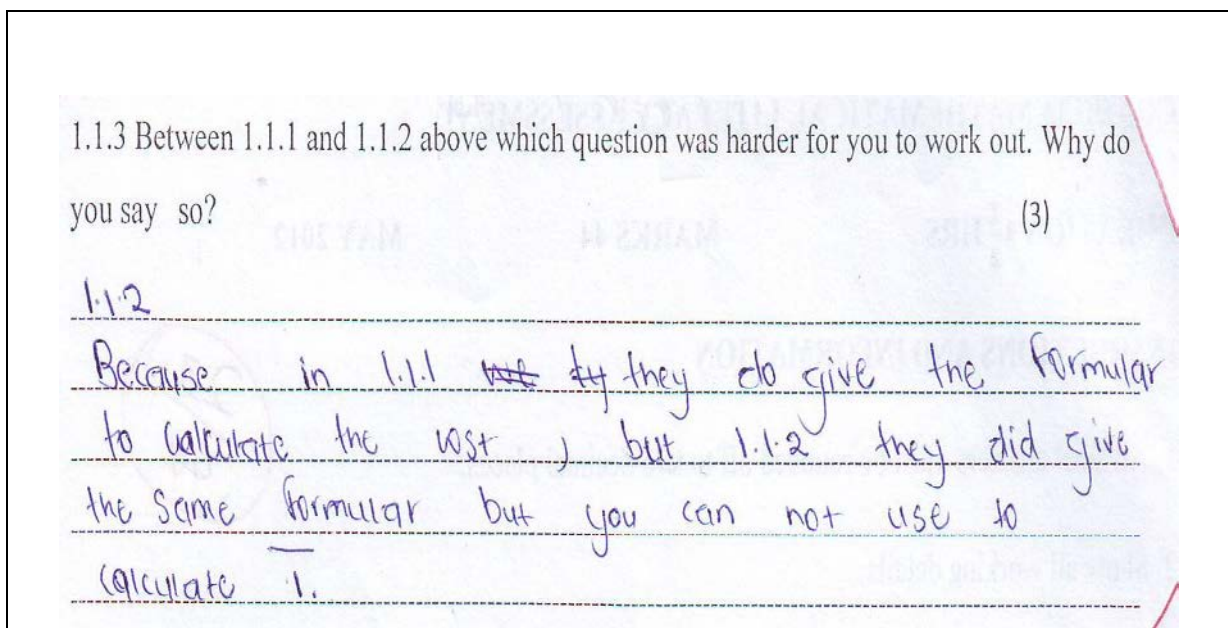 1.1.3 Between 1.1.1 and 1.1.2 above which question was harder for you to work out. Why do
you say so? (3)
1.1.2
Because in 1.1.1 they do give the formular
to calculate the cost , but 1.1.2 they did give
the same formular but you can not use to
calculate